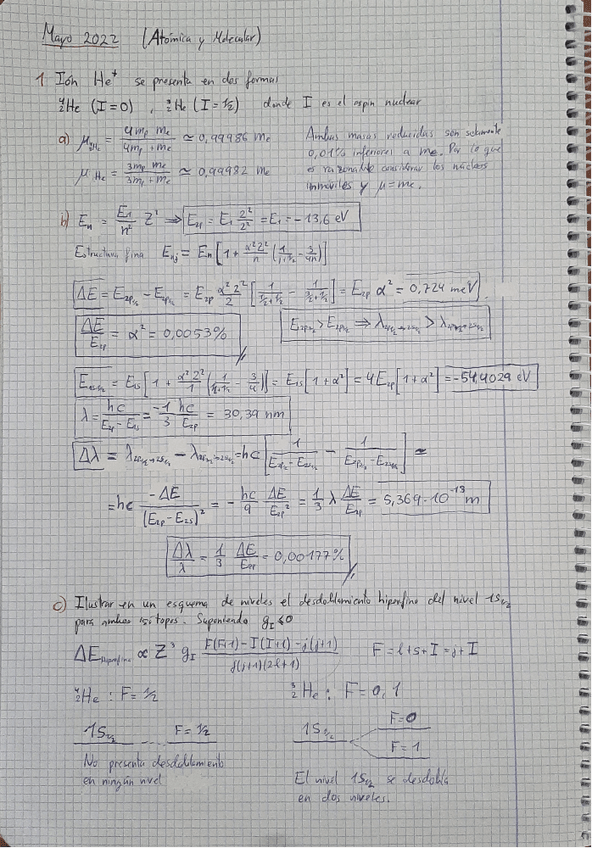 Mayo 2022 (Atómica y Molecular)
1 Ión He⁺ se presenta en dos formas
⁴₂He (I=0) , ³₂He (I=½) donde I es el espin nuclear
a) μ₄He = 4mp me / (4mp + me) ≃ 0,99986 me
μ₃He = 3mp me / (3mp + me) ≃ 0,99982 me
Ambas masas reducidas son solamente
0,01% inferiores a me. Por lo que
es razonable considerar los núcleos
inmóviles y μ = me.
b) En = E1/n² Z² ⇒ E2p = E1 2²/2² = E1 = -13,6 eV
Estructura fina Enj = En [1 + α²Z²/n (1/(j+½) - 3/4n)]
ΔE = E2p3/2 - E2p1/2 = E2p α²Z²/2 [1/(3/2+½) - 1/(½+½)] = E2p α² = 0,724 meV
ΔE/E2p = α² = 0,0053%
E2p3/2 > E2p1/2 ⇒ λ2p1/2→1s1/2 > λ2p3/2→1s1/2
E1s1/2 = E1s [1 + α²2²/1 (1/(½+½) - 3/4)] = E1s [1+α²] = 4E2p [1+α²] = -54,4029 eV
λ = hc/(E2p - E1s) = -1/3 hc/E2p = 30,39 nm
Δλ = λ2p3/2→1s1/2 - λ2p1/2→1s1/2 = hc [1/(E2p3/2 - E1s1/2) - 1/(E2p1/2 - E1s1/2)] ≃
= hc -ΔE/(E2p - E1s)² = - hc/9 ΔE/E2p² = 1/3 λ ΔE/E2p = 5,369·10⁻¹³ m
Δλ/λ = 1/3 ΔE/E2p = 0,00177%
c) Ilustrar en un esquema de niveles el desdoblamiento hiperfino del nivel 1S1/2
para ambos isótopos. Suponiendo gI<0
ΔEhiperfino ∝ Z³ gI (F(F+1) - I(I+1) - j(j+1)) / (j(j+1)(2l+1)) F = l+s+I = j+I
⁴₂He : F = ½ ³₂He : F = 0, 1
1S1/2 F = ½
1S1/2 F=0
F=1
No presenta desdoblamiento
en ningún nivel
El nivel 1S1/2 se desdobla
en dos niveles.